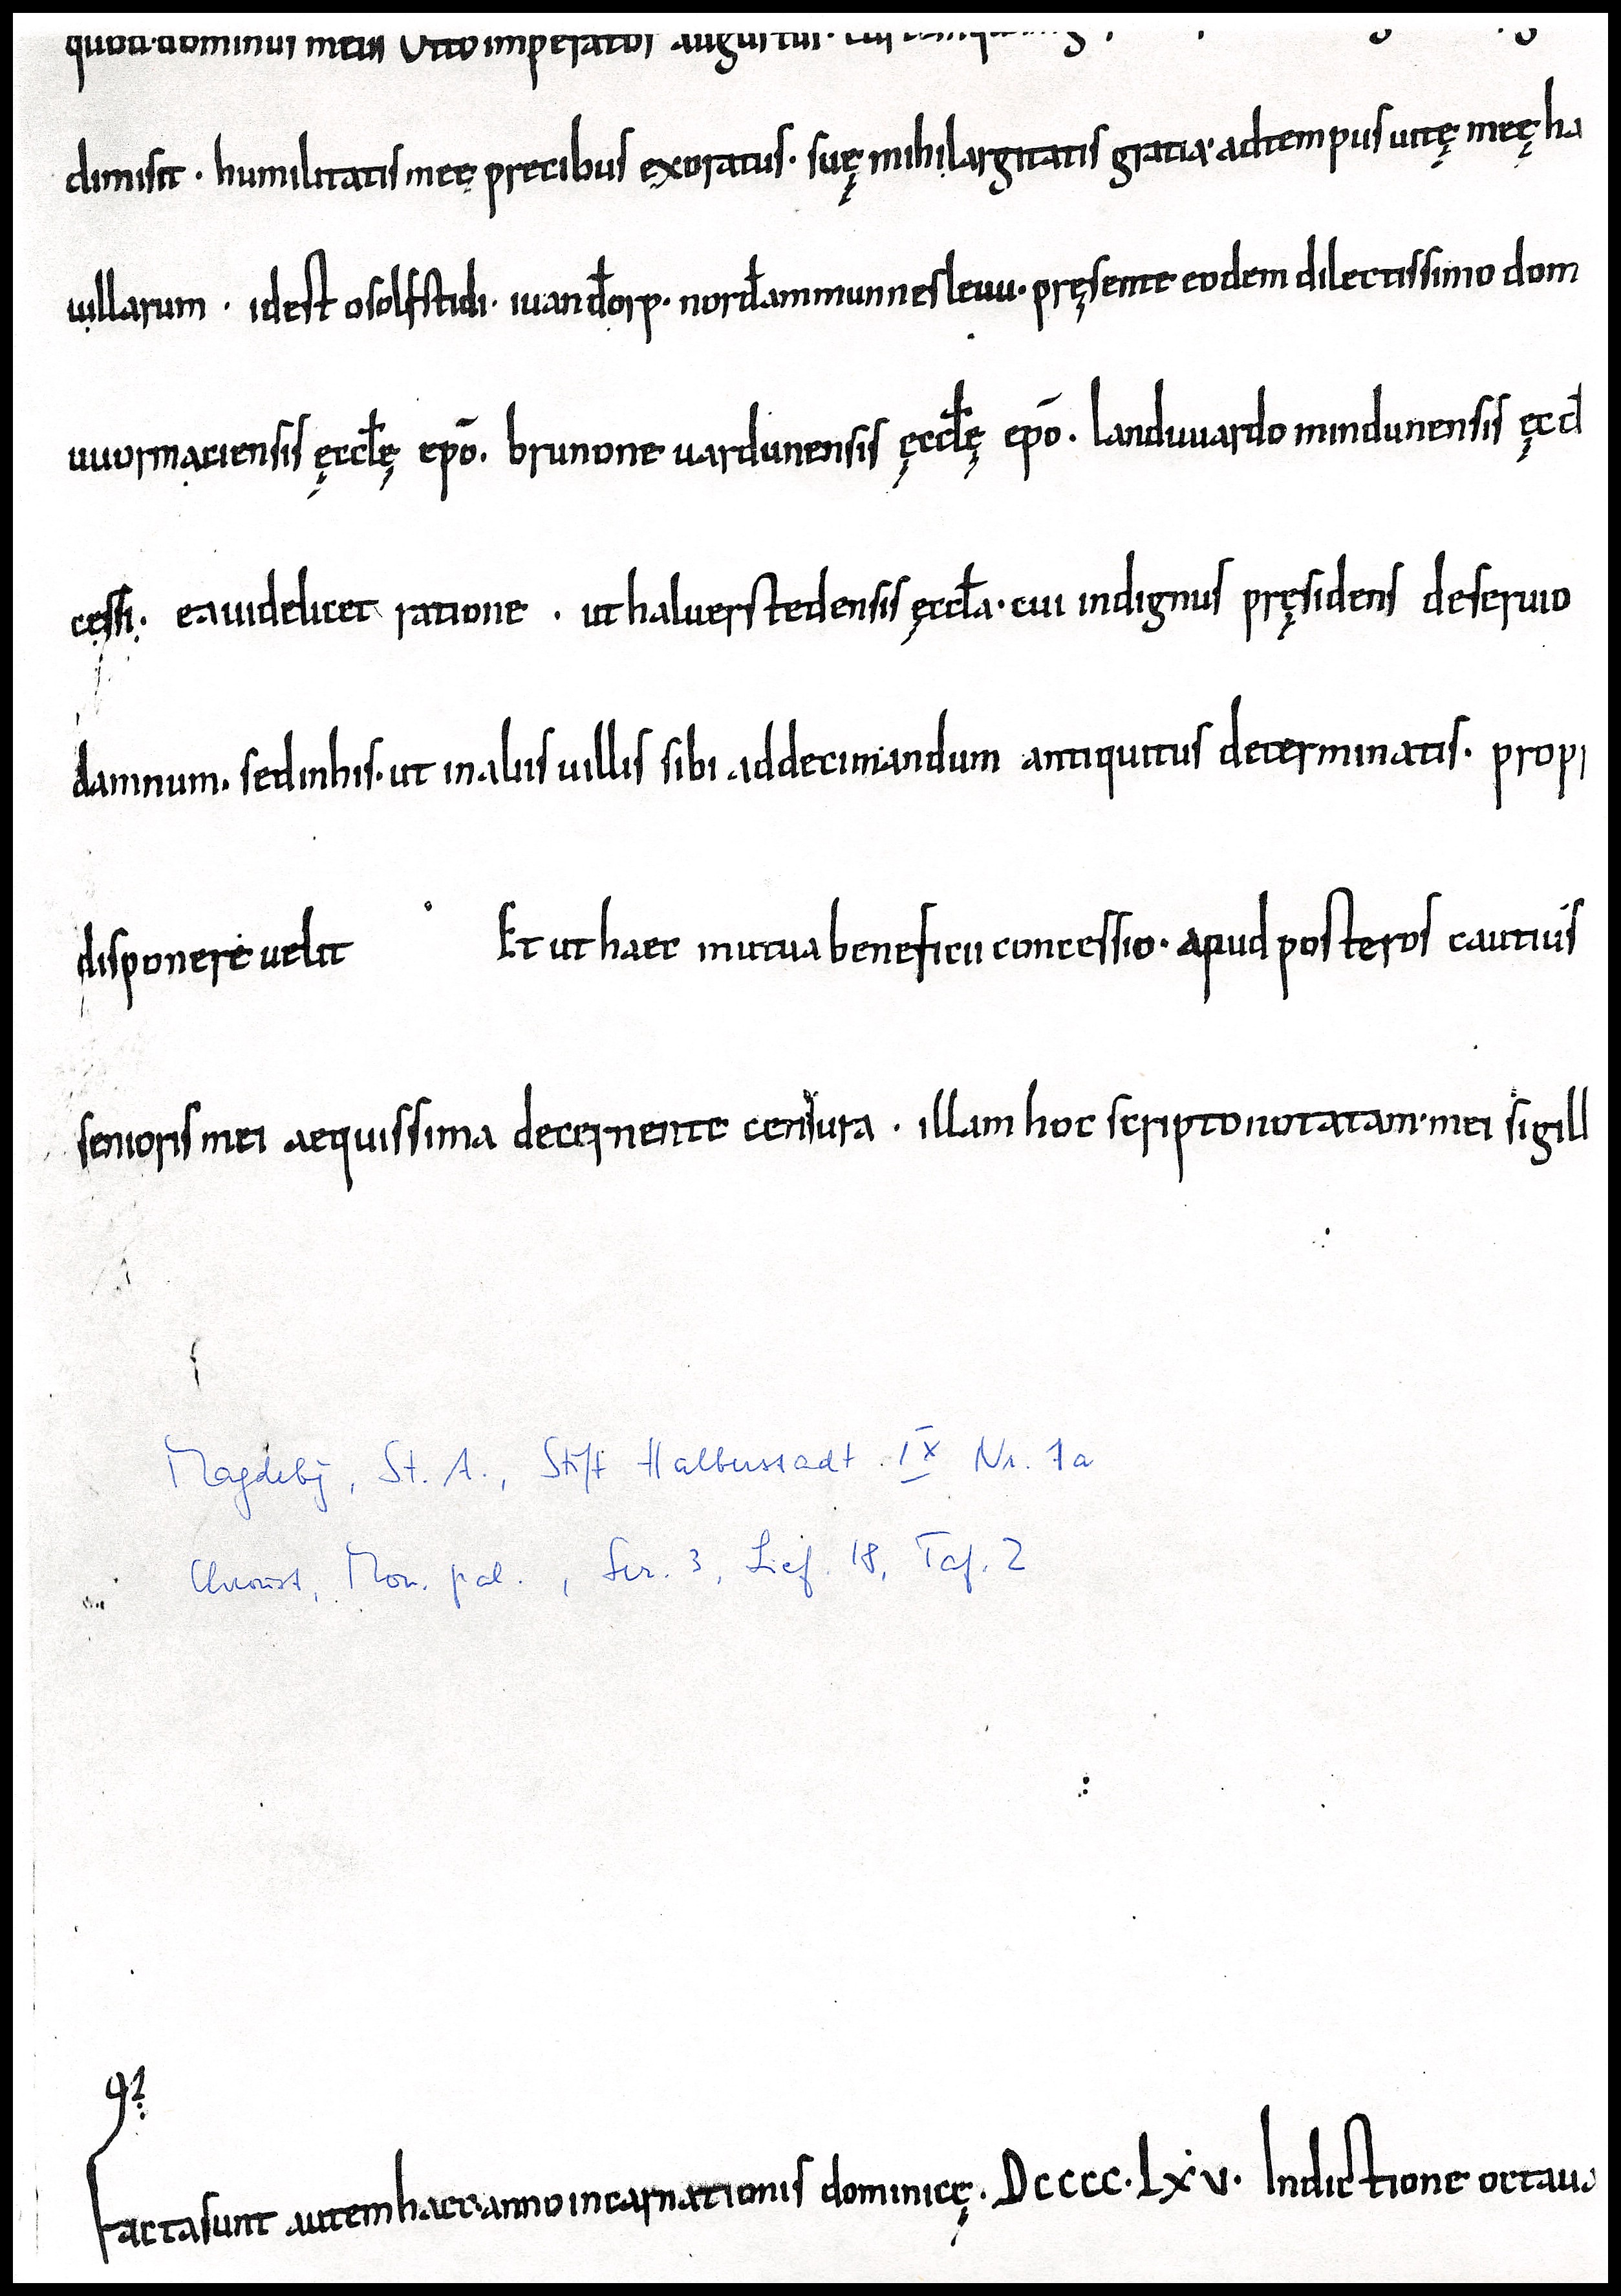 quod·dominus meus Otto imperator augustus·
dimisit · humilitatis meę precibus exoratus· suę mihi largitatis gratia· ad tempus uitę meę ha
uillarum · id est osolfstidi· iuandorp· nordammunnesleuu· pręsente eodem dilectissimo dom
uuormaciensis ęccƚę epō. brunone uardunensis ęccƚę epō. landuuardo mindunensis ęcƚ
cessi· ea uidelicet ratione · ut haluerstedensis ęccƚa· cui indignus pręsidens deseruio
damnum. sed in his· ut in aliis uillis sibi ad decimandum antiquitus determinatis· propr
disponere uelit Et ut haec mutua beneficii concessio· apud posteros cautius
senioris mei aequissima decernente censura · illam hoc scripto notatam· mei sigill
Magdebg, St. A., Stift Halberstadt IX Nr. 1a
Chroust, Mon. pal., Ser. 3, Lief. 18, Taf. 2
Facta sunt autem haec· anno incarnationis dominicę. Dcccc·Lxv· Indictione octaua